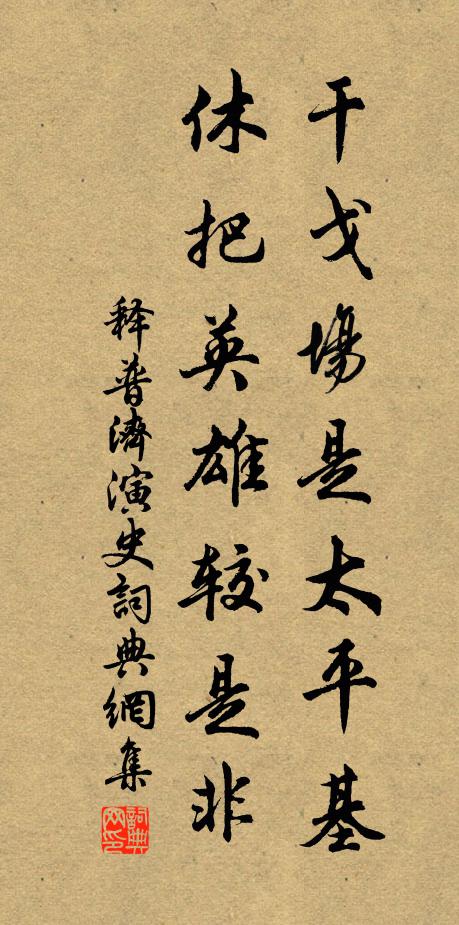 干戈場是太平基
休把英雄较是非
释普濟演史詞典網集
詞典网印